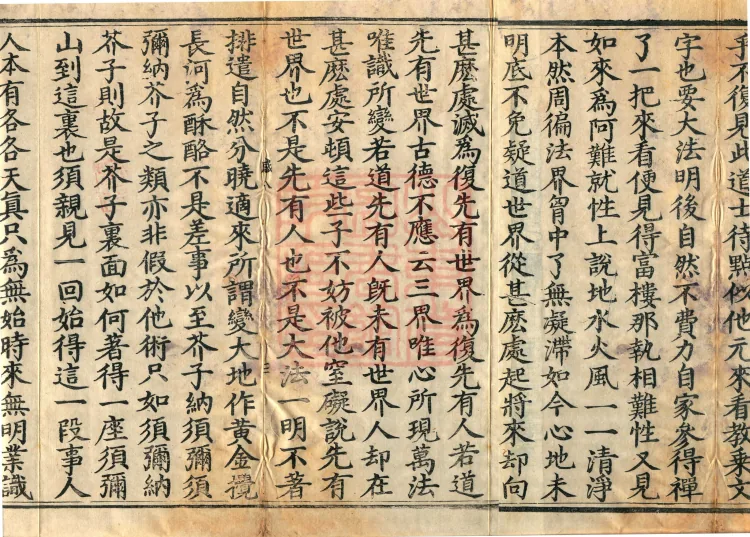 不復見此道士待點似他元來看教乘文
字也要大法明後自然不費力自家參得禪
了一把來看便見得富樓那執相難性又見
如來爲阿難就性上說地水火風一一清淨
本然周徧法界胷中了無凝滯如今心地未
明底不免疑道世界從甚麽處起將來却向
甚麽處滅爲復先有世界爲復先有人若道
先有世界古德不應云三界唯心所現萬法
唯識所變若道先有人旣未有世界人却在
甚麽處安頓這些子不妨被他窒礙說先有
世界也不是先有人也不是大法一明不著
排遣自然分曉適來所謂變大地作黄金攪
長河爲酥酪不是差事以至芥子納須彌須
彌納芥子之類亦非假於他術只如須彌納
芥子則故是芥子裏面如何著得一座須彌
山到這裏也須親見一回始得這一段事人
人本有各各天真只爲無始時來無明業識